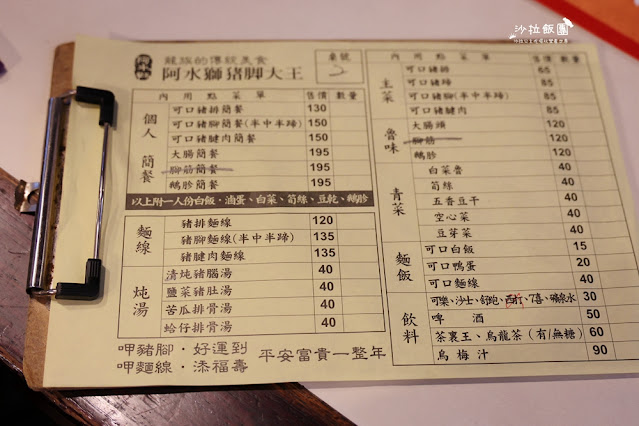 沙拉飯團
龍族的傳統美食
阿水獅豬腳大王
桌號
2
內用點菜單 售價 數量
個人簡餐
可口豬排簡餐 130
可口豬腳簡餐(半中半蹄) 150
可口豬腱肉簡餐 150
大腸簡餐 195
腳筋簡餐 195
鵝胗簡餐 195
以上附一人份白飯、滷蛋、白菜、筍絲、豆乾、鵝胗
麵線
豬排麵線 120
豬腳麵線(半中半蹄) 135
豬腱肉麵線 135
炖湯
清炖豬腦湯 40
鹽菜豬肚湯 40
苦瓜排骨湯 40
蛤仔排骨湯 40
呷豬腳·好運到
呷麵線·添福壽
平安富貴一整年
內用點菜單 售價 數量
主菜
可口豬排 65
可口豬蹄 85
可口豬腳(半中半蹄) 85
可口豬腱肉 85
魯味
大腸頭 120
腳筋 120
鵝胗 120
青菜
白菜魯 40
筍絲 40
五香豆干 40
空心菜 40
豆芽菜 40
麵飯
可口白飯 15
可口鴨蛋 20
可口麵線 40
飲料
可樂、沙士、舒跑、西打、7喜、礦泉水 30
啤酒 50
茶裏王、烏龍茶(有/無糖) 60
烏梅汁 90